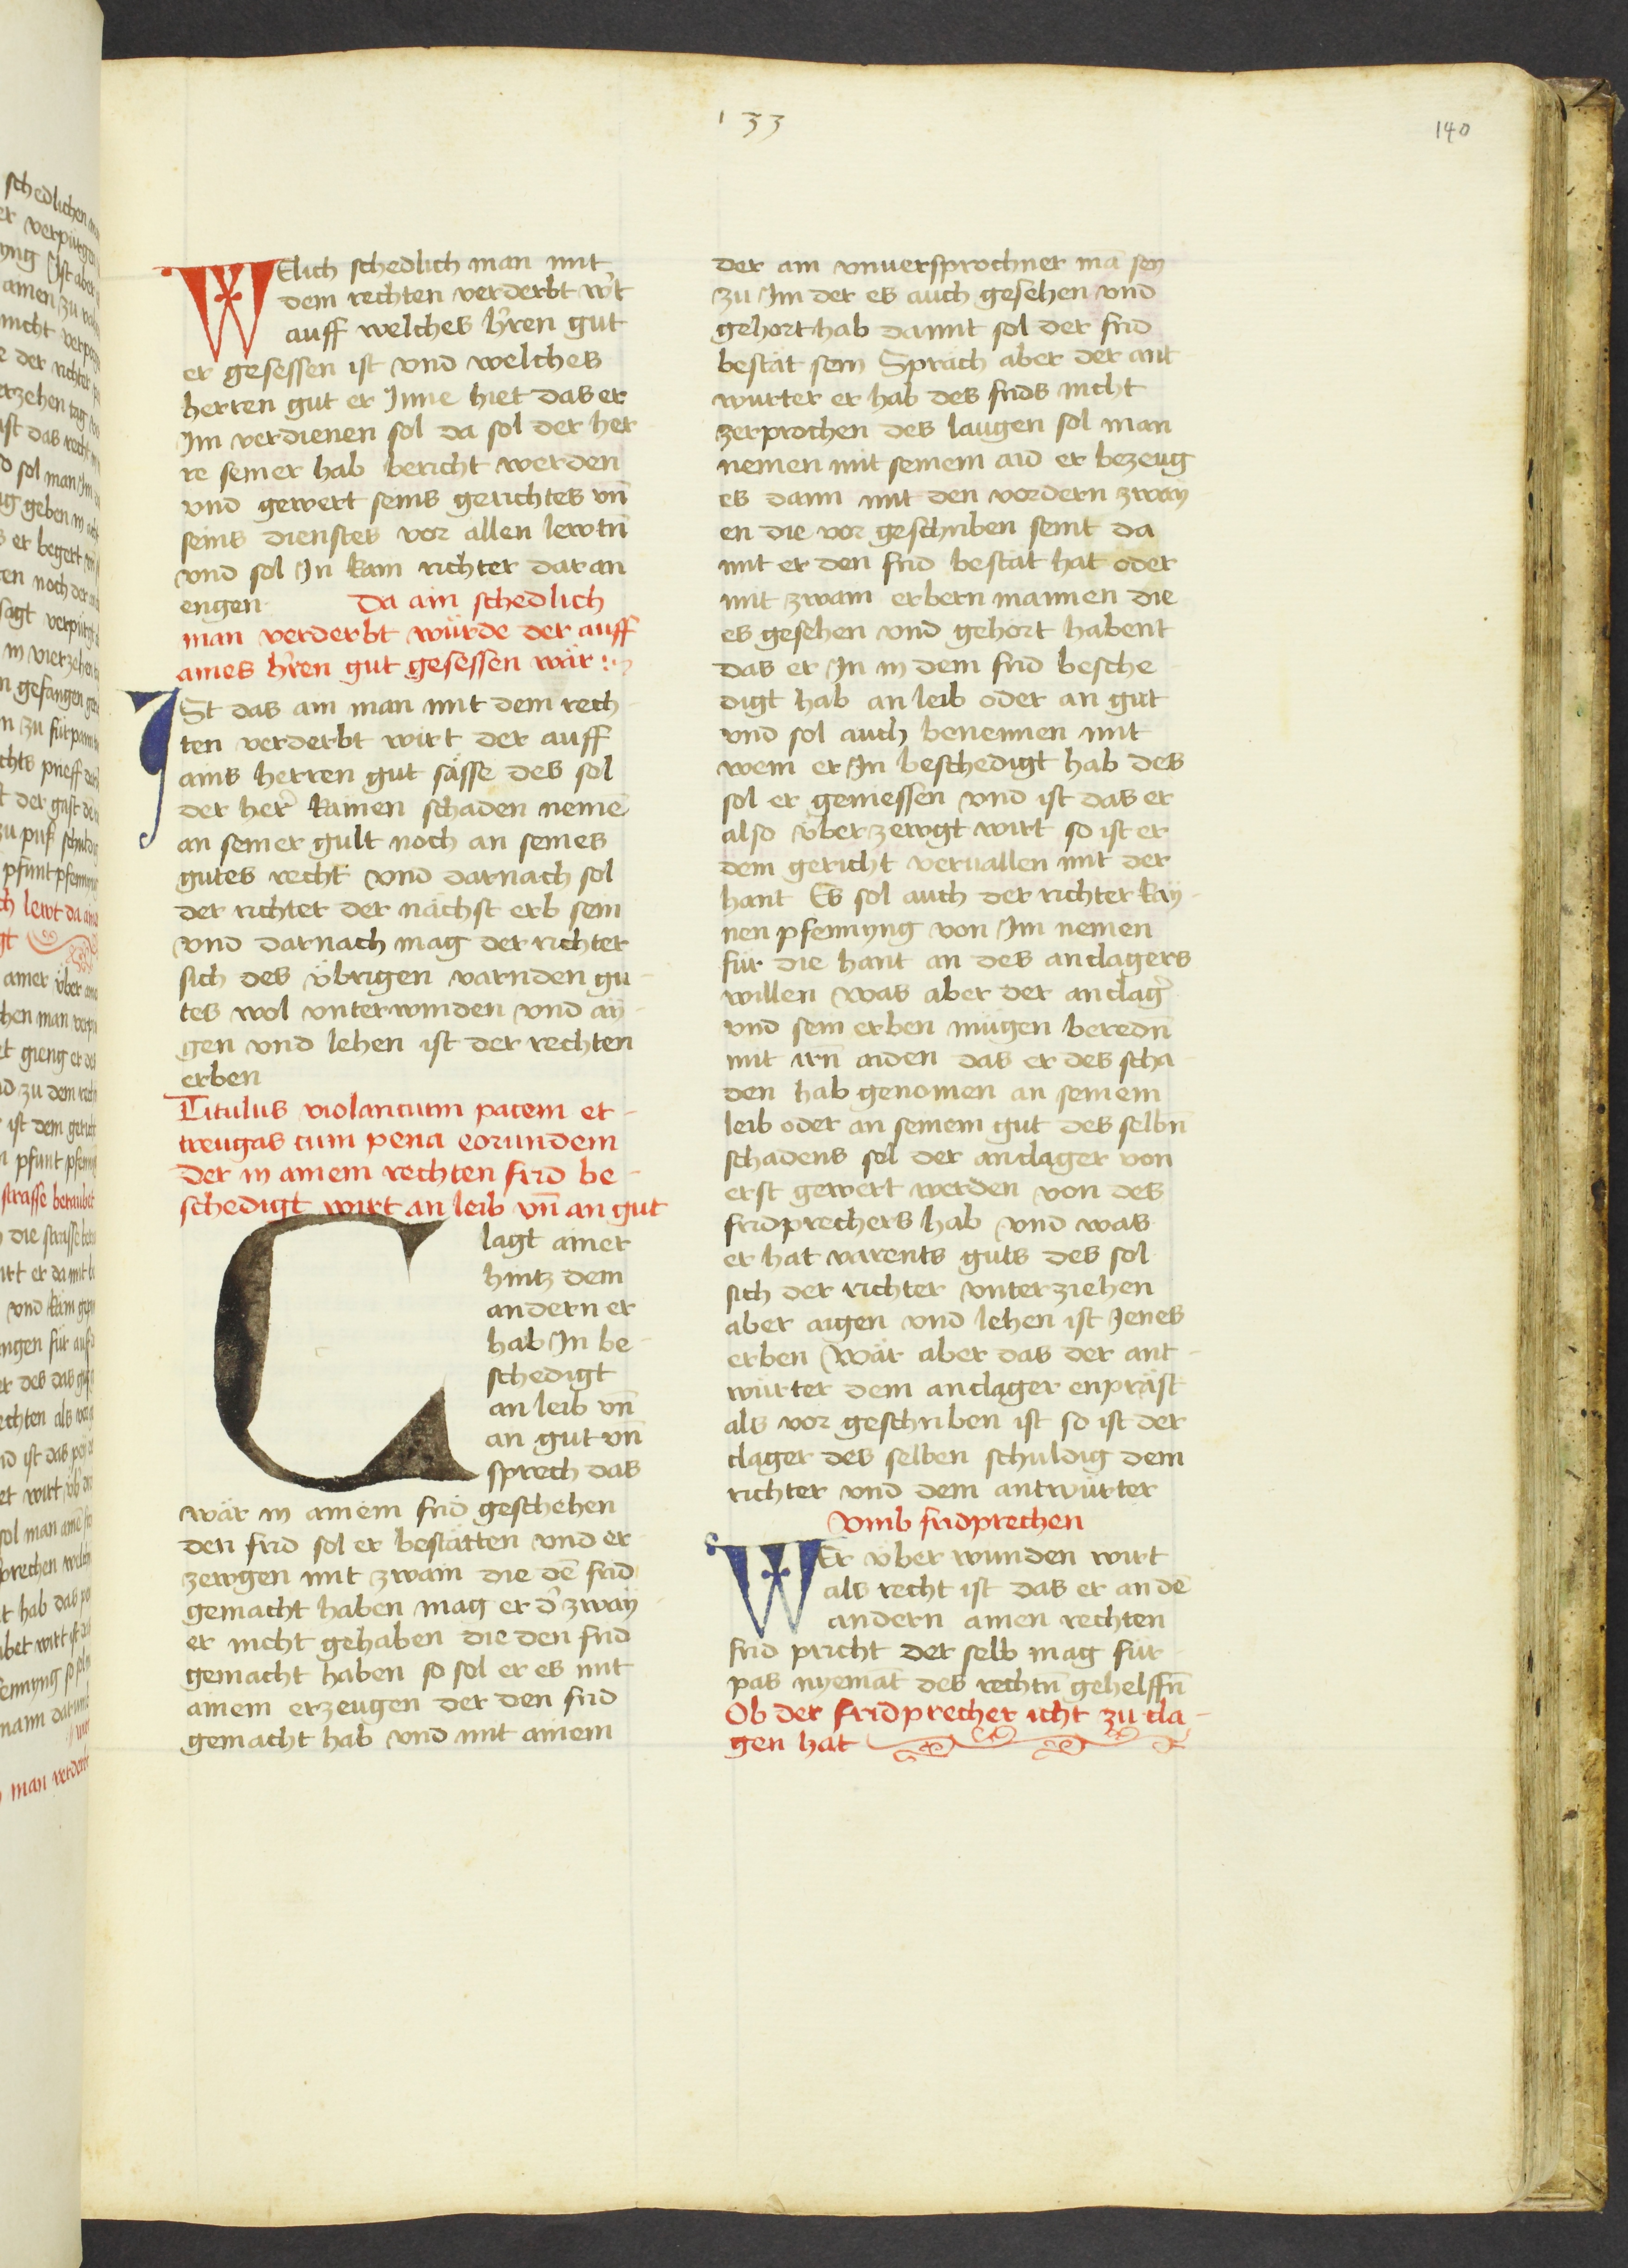 133
140
WElich schedlich man mit
dem rechten verderbt wirt
auff welches h'ren gut
er gesessen ist vnd welches
herren gut er Inne hiet das er
Im verdienen sol da sol der her
re seiner hab bericht werden
vnd gewert seins gerichtes vn̄
seins dienstes vor allen lewtn̄
vnd sol In kain richter daran
engen Da ain schedlich
man verderbt würde der auff
aines h'ren gut gesessen wär
ISt das ain man mit dem rech
ten verderbt wirt der auff
ains herren gut sässe des sol
der her' kainen schaden nemē
an seiner gult noch an seines
gutes recht vnd darnach sol
der richter der nächst erb sein
vnd darnach mag der richter
sich des übrigen varnden gu-
tes wol vnterwinden vnd ay-
gen vnd lehen ist der rechten
erben
Titulus violancium pacem et-
treugas cum pena eorundem
Der in ainem rechten frid be-
schedigt wirt an leib vn̄ an gut
Clagt ainer
hintz dem
andern er
hab In be-
schedigt
an leib vn̄
an gut vn̄
sprech das
wär in ainem frid geschehen
den frid sol er bestätten vnd er
zewgen mit zwain die dē frid
gemacht haben mag er d' zway
er nicht gehaben die den frid
gemacht haben so sol er es mit
ainem erzeugen der den frid
gemacht hab vnd mit ainem
der ain vnuersprochner mā sey
zu Im der es auch gesehen vnd
gehort hab damit sol der frid
bestät sein Spräch aber der ant
wurter er hab des frids nicht
zerprochen des laugen sol man
nemen mit seinem aid er bezeug
es dann mit den vordern zway-
en die vor geschriben seint da
mit er den frid bestät hat oder
mit zwain erbern mannen die
es gesehen vnd gehort habent
das er In in dem frid besche-
digt hab an leib oder an gut
vnd sol auch benennen mit
wem er In beschedigt hab des
sol er geniessen vnd ist das er
also überzewgt wirt so ist er
dem gericht veruallen mit der
hant Es sol auch der richter kay-
nen pfennyng von Im nemen
für die hant an des anclagers
willen was aber der anclag'
vnd sein erben mügen beredn̄
mit irn̄ aiden das er des scha-
den hab genomen an seinem
leib oder an seinem gut des selbn̄
schadens sol der anclager von
erst gewert werden von des
fridprechers hab vnd was
er hat varents guts des sol
sich der richter vnterziehen
aber aigen vnd lehen ist Jenes
erben Wär aber das der ant-
wurter dem anclager enpräst
als vor geschriben ist so ist der
clager des selben schuldig dem
richter vnd dem antwürter
Vmb fridprechen
WEr über wunden wirt
als recht ist das er an dē
andern ainen rechten
frid pricht der selb mag für-
pas nyemāt des rechtn̄ gehelffn̄
Ob der fridprecher icht zu cla-
gen hat